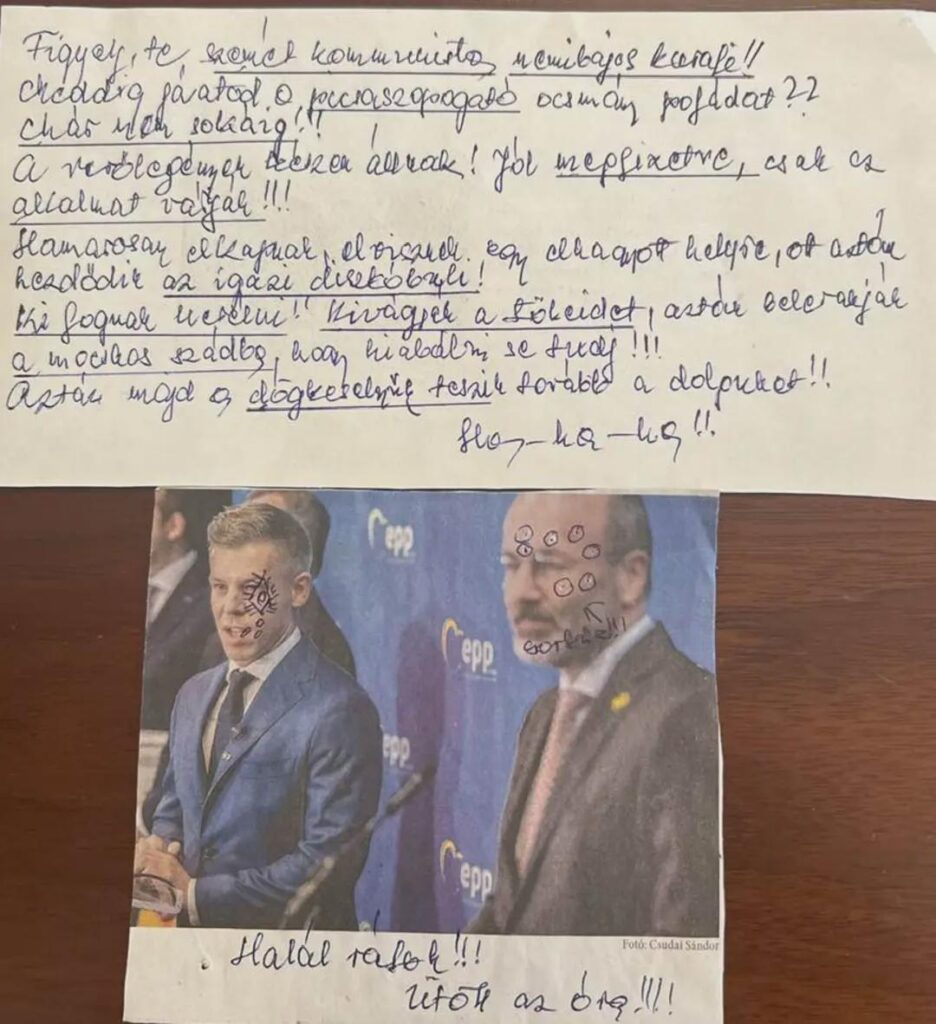 Figyelj, te szemét kommunista nemibajos kurafi!!
Meddig járatod a picsaszopogató ocsmány pofádat??
Már nem sokáig!!
A verőlegények készen állnak! Jól megfizetve, csak az
alkalmat várják!!!
Hamarosan elkapnak, elvisznek egy elhagyott helyre, ott aztán
kezdődik az igazi diszkóbuli!
Ki fognak herélni!! Kivágják a tökeidet, aztán belerakják
a mocskos szádba, hogy kiabálni se tudj!!!
Aztán majd a dögkeselyűk teszik tovább a dolgukat!!
Ha-ha-ha!!
epp
sortűz!!!
epp
epp
epp
Fotó: Csudai Sándor
Halál rátok!!!
Ütött az óra!!!!